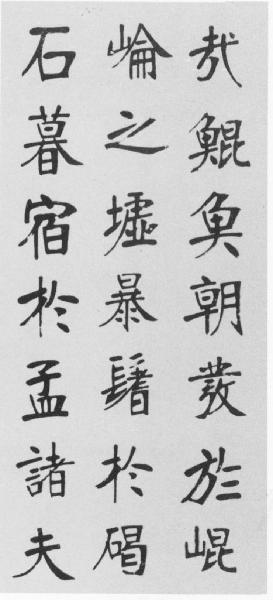 哉鯤魚朝發於崐
崘之墟暴鬐於碣
石暮宿於孟諸夫